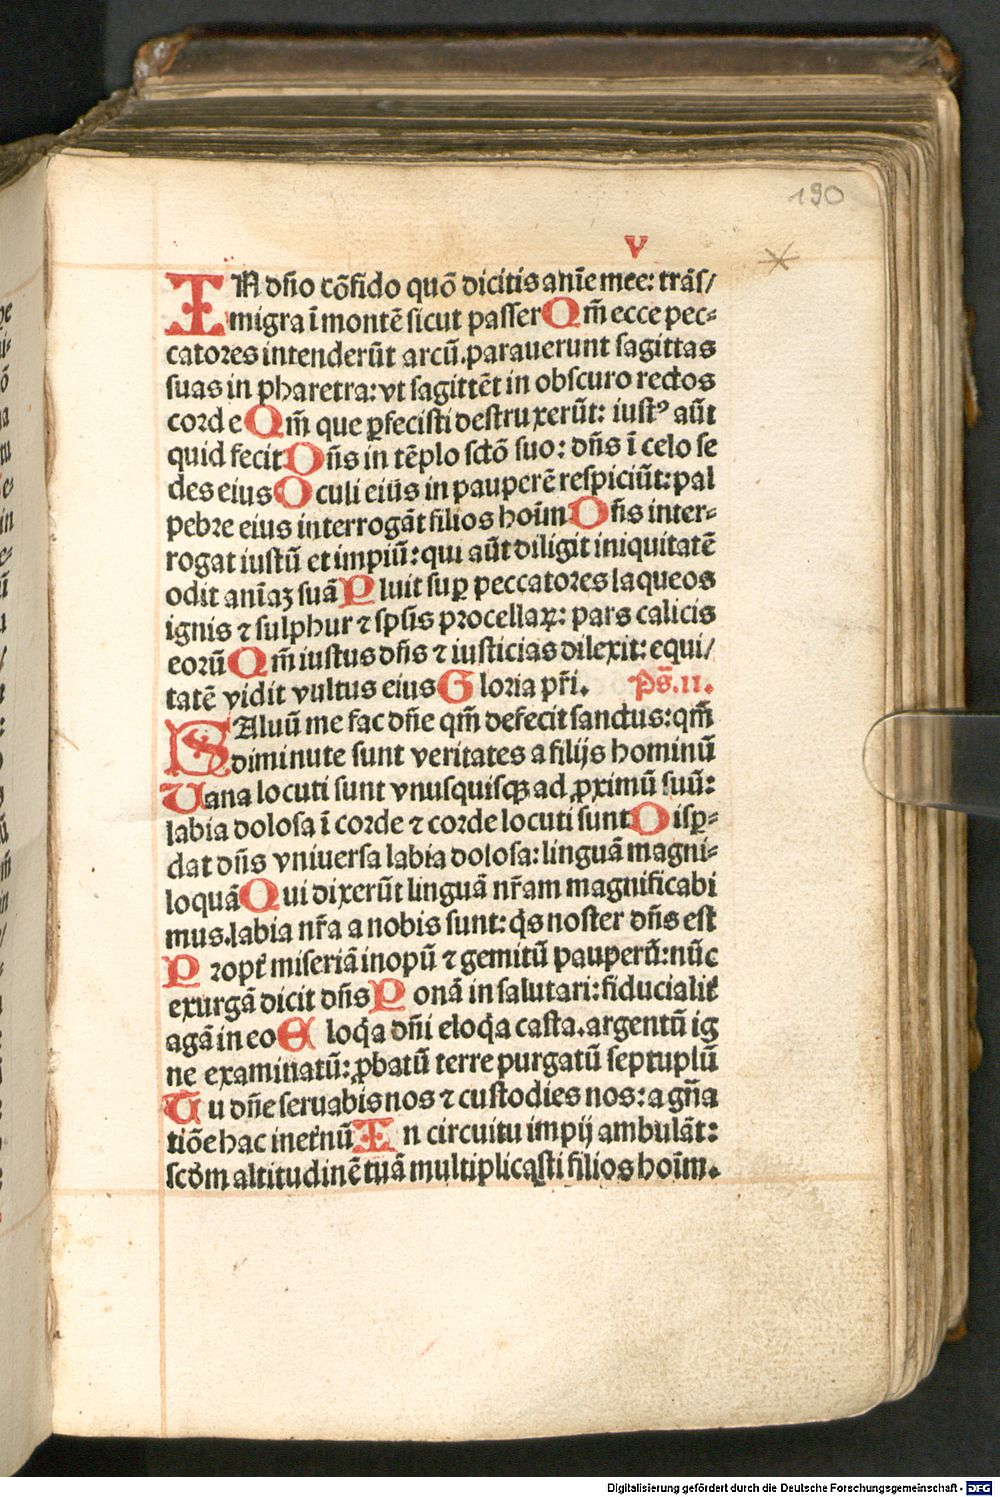 190
v
IN dño cõfido quõ dicitis anĩe mee: trãs/
migra ĩ montẽ sicut passer Qm̃ ecce pec⸗
catores intenderũt arcũ.parauerunt sagittas
suas in pharetra: vt sagittẽt in obscuro rectos
corde Qm̃ que ꝑfecisti destruxerũt: iustꝰ aũt
quid fecit Dñs in tẽplo sctõ suo: dñs ĩ celo se
des eius Oculi eiũs in pauperẽ respiciũt: pal
pebre eius interrogãt filios hoĩm Dñs inter⸗
rogat iustũ et impiũ: qui aũt diligit iniquitatẽ
odit anĩaꝫ suã Pluit suꝑ peccatores laqueos
ignis ⁊ sulphur ⁊ spũs procellaꝝ: pars calicis
eorũ Qm̃ iustus dñs ⁊ iusticias dilexit: equi/
tatẽ vidit vultus eius Gloria pr̃i. Ps̃.11.
SAluũ me fac dñe qm̃ defecit sanctus: qm̃
diminute sunt veritates a filijs hominũ
Uana locuti sunt vnusquisqꝫ ad ꝓximũ suũ:
labia dolosa ĩ corde ⁊ corde locuti sunt Disꝑ⸗
dat dñs vniuersa labia dolosa: linguã magni⸗
loquã Qui dixerũt linguã nr̃am magnificabi
mus.labia nr̃a a nobis sunt: q̇s noster dñs est
Propt̃ miseriã inopũ ⁊ gemitũ pauperũ: nũc
exurgã dicit dñs Ponã in salutari: fiducialit̃
agã in eo Eloq̇a dñi eloq̇a casta.argentũ ig
ne examinatũ: ꝓbatũ terre purgatũ septuplũ
Tu dñe seruabis nos ⁊ custodies nos: a gña
tiõe hac inet̃nũ In circuitu impij ambulãt:
scđm altitudinẽ tuã multiplicasti filios hoĩm.
Digitalisierung gefördert durch die Deutsche Forschungsgemeinschaft - DFG